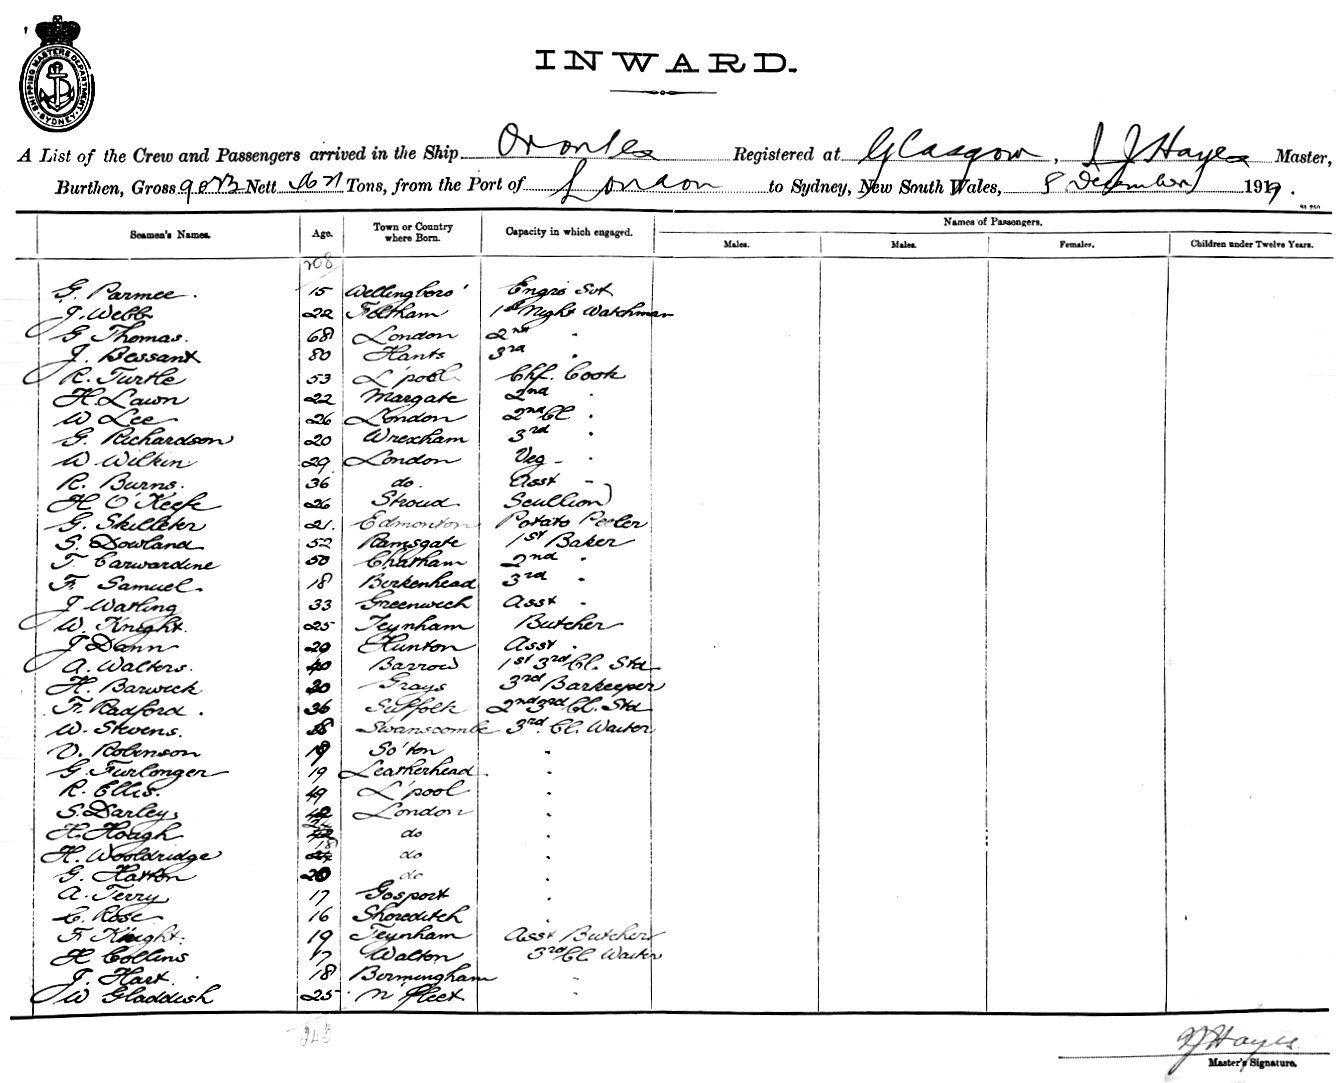 SHIPPING MASTERS DEPARTMENT · SYDNEY ·
INWARD.
A List of the Crew and Passengers arrived in the Ship Orontes Registered at Glasgow, J Hayes Master,
Burthen, Gross 9023 Nett Tons, from the Port of London to Sydney, New South Wales, 8 December 1919.
Seamen's Names. Age. Town or Country where Born. Capacity in which engaged. Names of Passengers.
Males. Males. Females. Children under Twelve Years.
208
G. Parmee. 15 Wellingboro' Engrs Svt
J. Webb 22 Feltham 1st Night Watchman
G Thomas. 68 London 2nd "
J. Bessant 80 Hants 3rd "
R. Turtle 53 L'pool Chf. Cook
H. Lawn 22 Margate 2nd "
W Lee 26 London 2nd Cl "
G. Richardson 20 Wrexham 3rd "
W Wilkin 29 London Veg - "
R. Burns. 36 do. Asst - "
H O'Keefe 26 Stroud Scullion
G. Skilleter 21. Edmonton Potato Peeler
S. Dowland 52 Ramsgate 1st Baker
T. Carwardine 50 Chatham 2nd "
F. Samuel. 18 Birkenhead 3rd "
J Watling 33 Greenwich Asst "
W. Knight. 25 Teynham Butcher
J Dann 29 Hunton Asst.
A. Walters. 40 Barrow 1st 3rd Cl. Std
H. Barwick 30 Grays 3rd Barkeeper
F. Radford. 36 Suffolk 2nd 3rd Cl. Std
W. Stevens. 38 Swanscombe 3rd. Cl. Waiter
V. Robinson 19 So'ton "
G. Furlonger 19 Leatherhead. "
R. Ellis. 49 L'pool "
S. Darley, London "
H. Hough do "
H. Wooldridge 18 do "
G. Hatton 20 do "
A. Terry 17 Gosport "
C. Rose 16 Shoreditch "
F Knight. 19 Teynham Asst Butcher
H Collins 17 Walton 3rd Cl Waiter
J. Hart. 18 Bermingham "
W Gladdish 25 N'fleet "
243
J Hayes
Master's Signature.